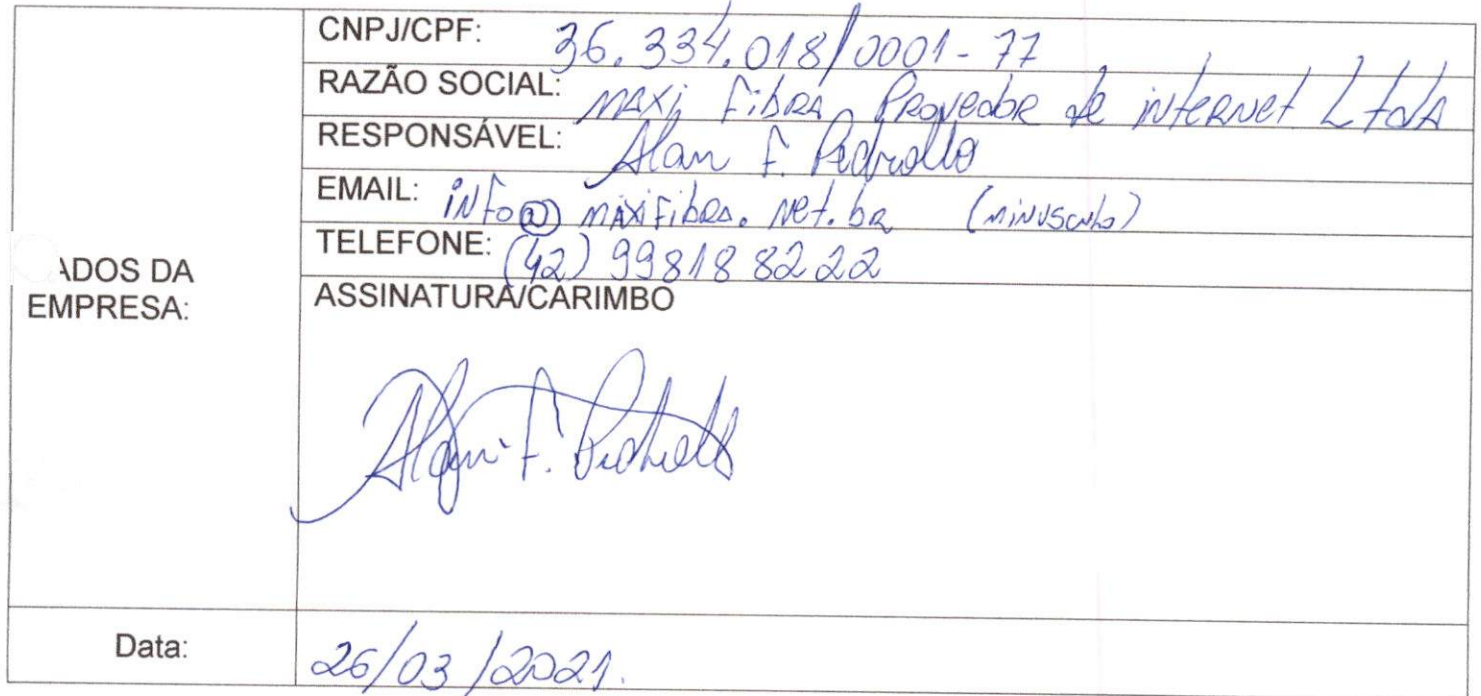 CNPJ/CPF: 36.334.018/0001-77
RAZÃO SOCIAL: MAXi FibRA PROVEdoR de iNtERNet LtdA
RESPONSÁVEL: Alan F. Pedrollo
EMAIL: iNFo@maxiFibRa.Net.bR (miNUSculo)
TELEFONE: (42) 99818 8222
ADOS DA
EMPRESA:
ASSINATURA/CARIMBO
Alan F. Pedrollo
Data: 26/03/2021.